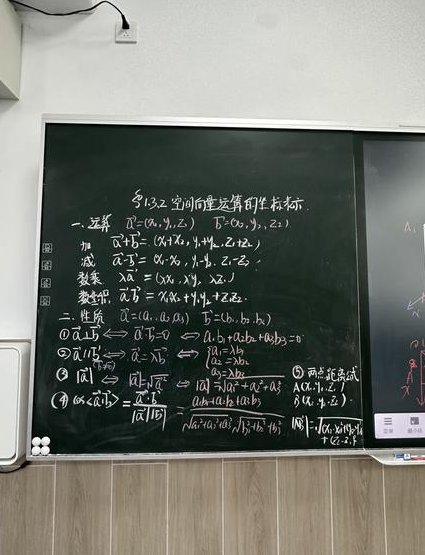 §1.3.2 空间向量运算的坐标表示
一、运算 a⃗=(x₁,y₁,z₁) b⃗=(x₂,y₂,z₂)
加 a⃗+b⃗=(x₁+x₂,y₁+y₂,z₁+z₂)
减 a⃗-b⃗=(x₁-x₂,y₁-y₂,z₁-z₂)
数乘 λa⃗=(λx₁,λy₁,λz₁)
数量积 a⃗·b⃗=x₁x₂+y₁y₂+z₁z₂
二、性质 a⃗=(a₁,a₂,a₃) b⃗=(b₁,b₂,b₃)
①a⃗⊥b⃗⇔a⃗·b⃗=0⇔a₁b₁+a₂b₂+a₃b₃=0
②a⃗∥b⃗⇔a⃗=λb⃗⇔{a₁=λb₁
a₂=λb₂
a₃=λb₃
③|a⃗|⇔|a⃗|=√a⃗²⇔|a⃗|=√a₁²+a₂²+a₃²
④cos<a⃗,b⃗>=a⃗·b⃗/|a⃗||b⃗|=a₁b₁+a₂b₂+a₃b₃/√a₁²+a₂²+a₃²√b₁²+b₂²+b₃²
⑤两点距离公式
A(x₁,y₁,z₁)
B(x₂,y₂,z₂)